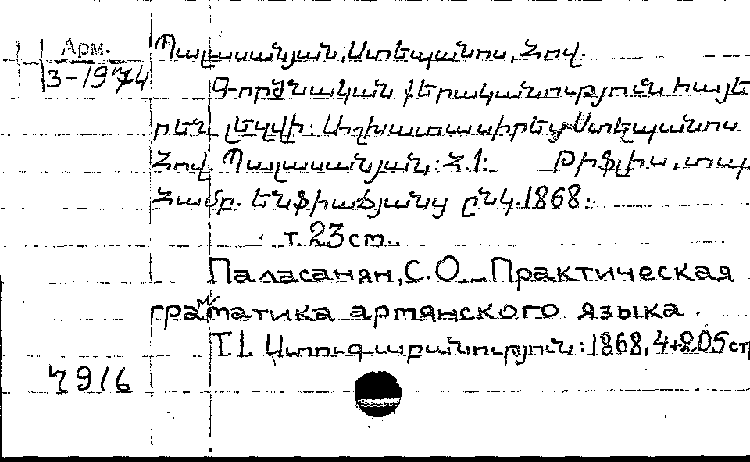 Арм.
3-1974
Պալասանյան, Ստեպանոս, Հով.
Գործնական քերականություն հայե
րեն լեզվի: Աշխատասիրեց Ստեպանոս
Հով. Պալասանյան: Հ.1: Թիֆլիս, տպ.
Համբ. Ենֆիաճյանց ընկ. 1868.
т. 23 ст.
Паласанян, С.О. Практическая
граматика армянского языка.
Т.1. Ստուգաբանություն: 1868, 4+205 ст
7916